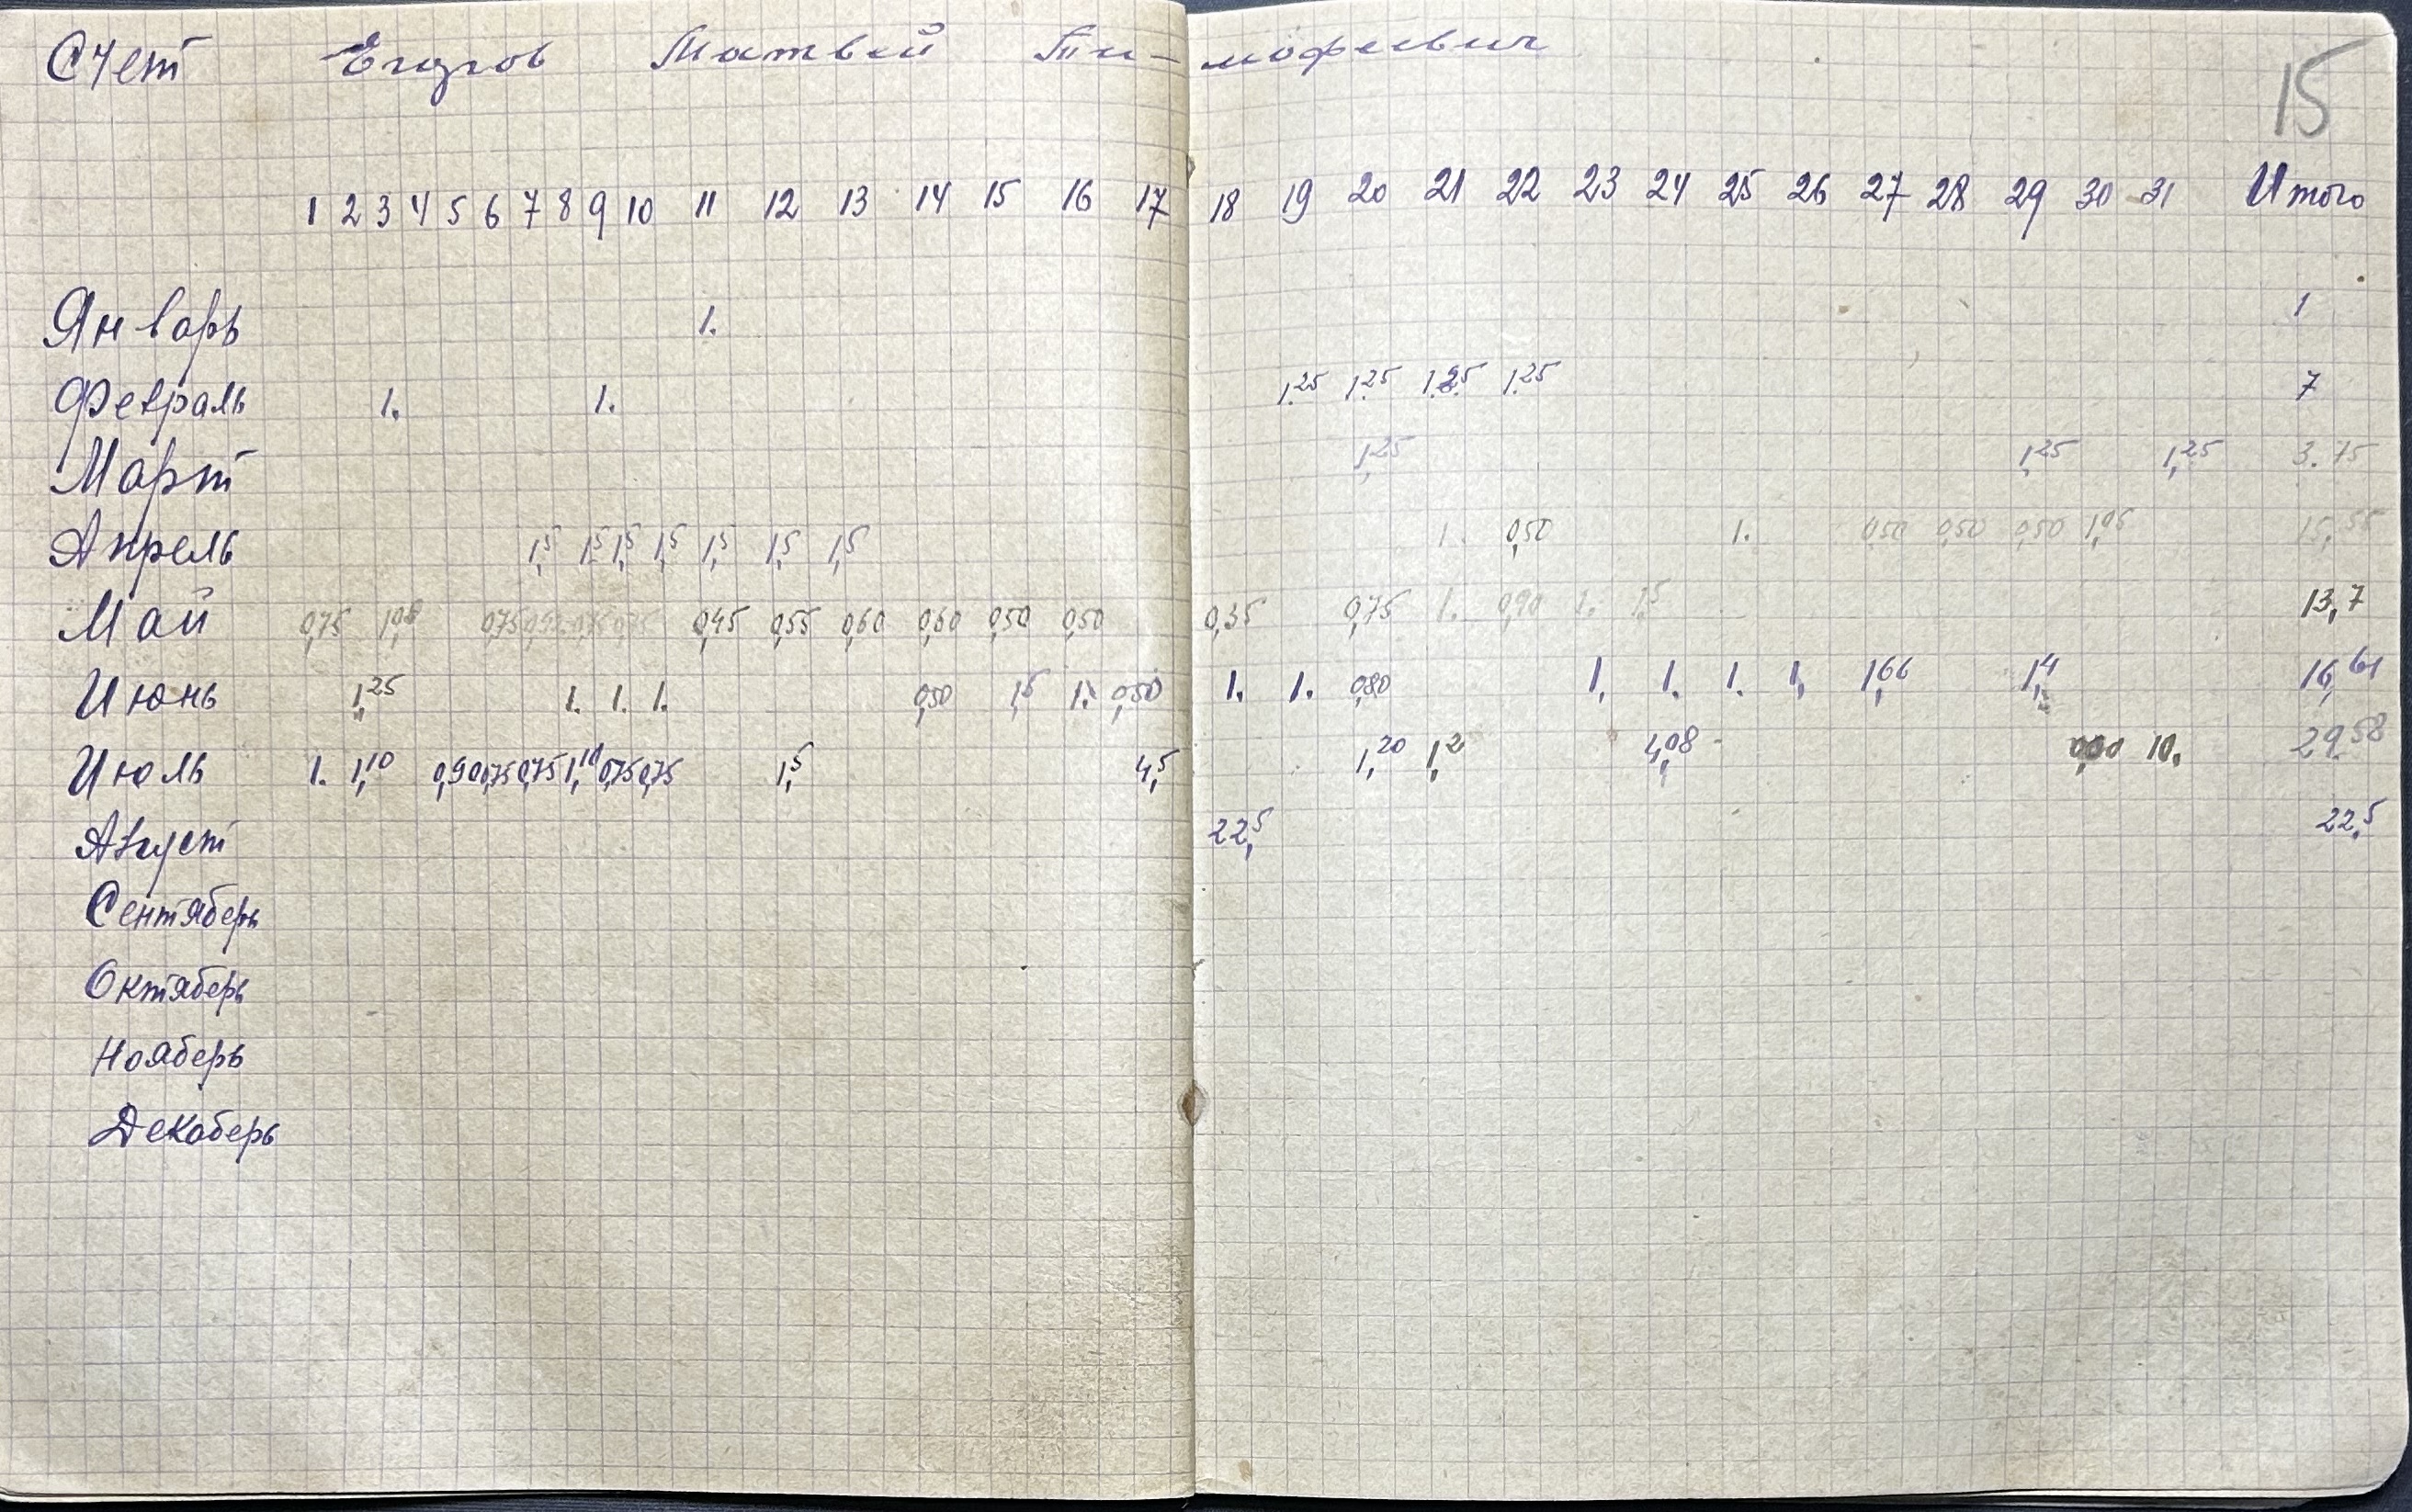 Счет Егоров Матвей Тимофеевич
15
1 2 3 4 5 6 7 8 9 10 11 12 13 14 15 16 17 18 19 20 21 22 23 24 25 26 27 28 29 30 31 Итого
Январь 1. 1
Февраль 1. 1. 1.25 1.25 1.25 1.25 7
Март 1,25 1,25 1,25 3.75
Апрель 1,5 1,5 1,5 1,5 1,5 1,5 1,5 1. 0,50 1. 0,50 0,50 0,50 1,05 15,55
Май 0,75 1,08 0,75 0,75 0,45 0,55 0,60 0,60 0,50 0,50 0,35 0,75 1. 0,90 1. 1,5 13,7
Июнь 1,25 1. 1. 1. 0,50 1,5 1. 0,50 1. 1. 0,80 1, 1. 1. 1, 1,66 1,4 16,61
Июль 1. 1,10 0,90 0,75 0,75 1,10 0,75 0,75 1,5 4,5 1,20 1,2 4,08 10. 29.58
Август 22,5 22,5
Сентяберь
Октяберь
Нояберь
Декаберь